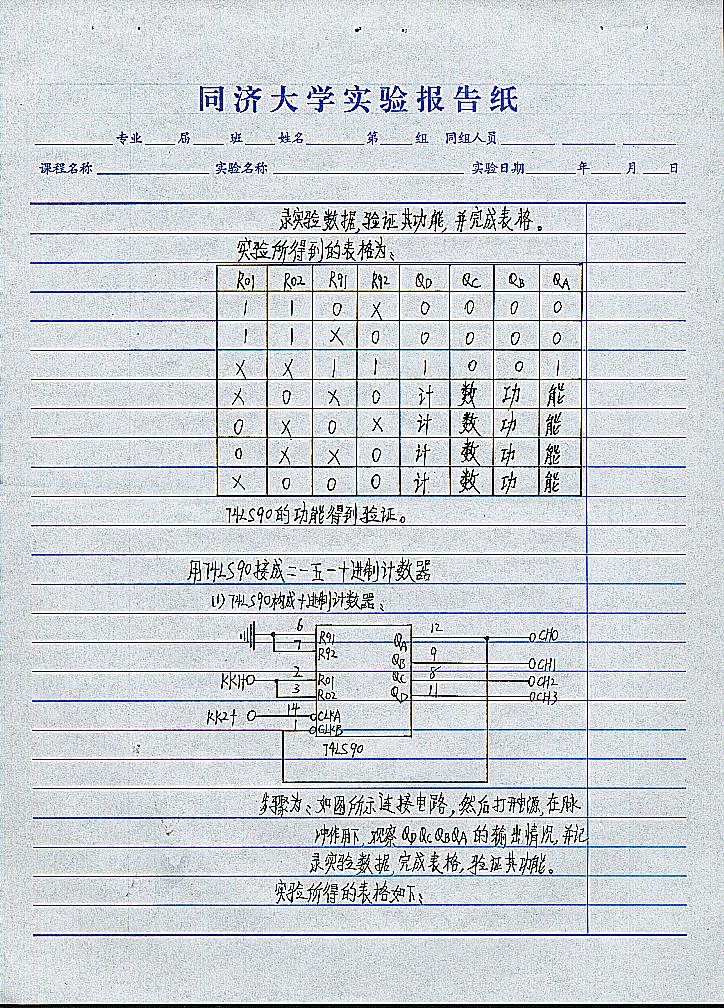 同济大学实验报告纸
专业 届 班 姓名 第 组 同组人员
课程名称 实验名称 实验日期 年 月 日
录实验数据,验证其功能,并完成表格。
实验所得到的表格为:
R01 R02 R91 R92 QD QC QB QA
1 1 0 X 0 0 0 0
1 1 X 0 0 0 0 0
X X 1 1 1 0 0 1
X 0 X 0 计 数 功 能
0 X 0 X 计 数 功 能
0 X X 0 计 数 功 能
X 0 0 0 计 数 功 能
74LS90的功能得到验证。
用74LS90接成二一五一十进制计数器
(1) 74LS90构成十进制计数器:
6 R91 QA 12 CH0
7 R92
QB 9 CH1
KK1 2 R01 QC 8 CH2
3 R02 QD 11 CH3
KK2 14 CLKA
1 CLKB
74LS90
步骤为:如图所示连接电路,然后打开电源,在脉
冲作用下,观察QDQCQBQA的输出情况,并记
录实验数据,完成表格,验证其功能。
实验所得的表格如下: